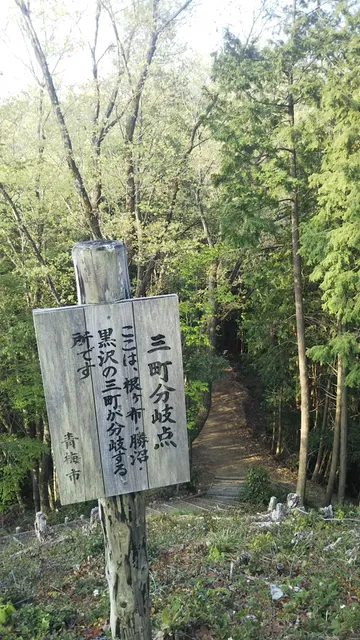 三町分岐点
ここは、根ヶ布・勝沼・
黒沢の三町が分岐する
所です
青梅市